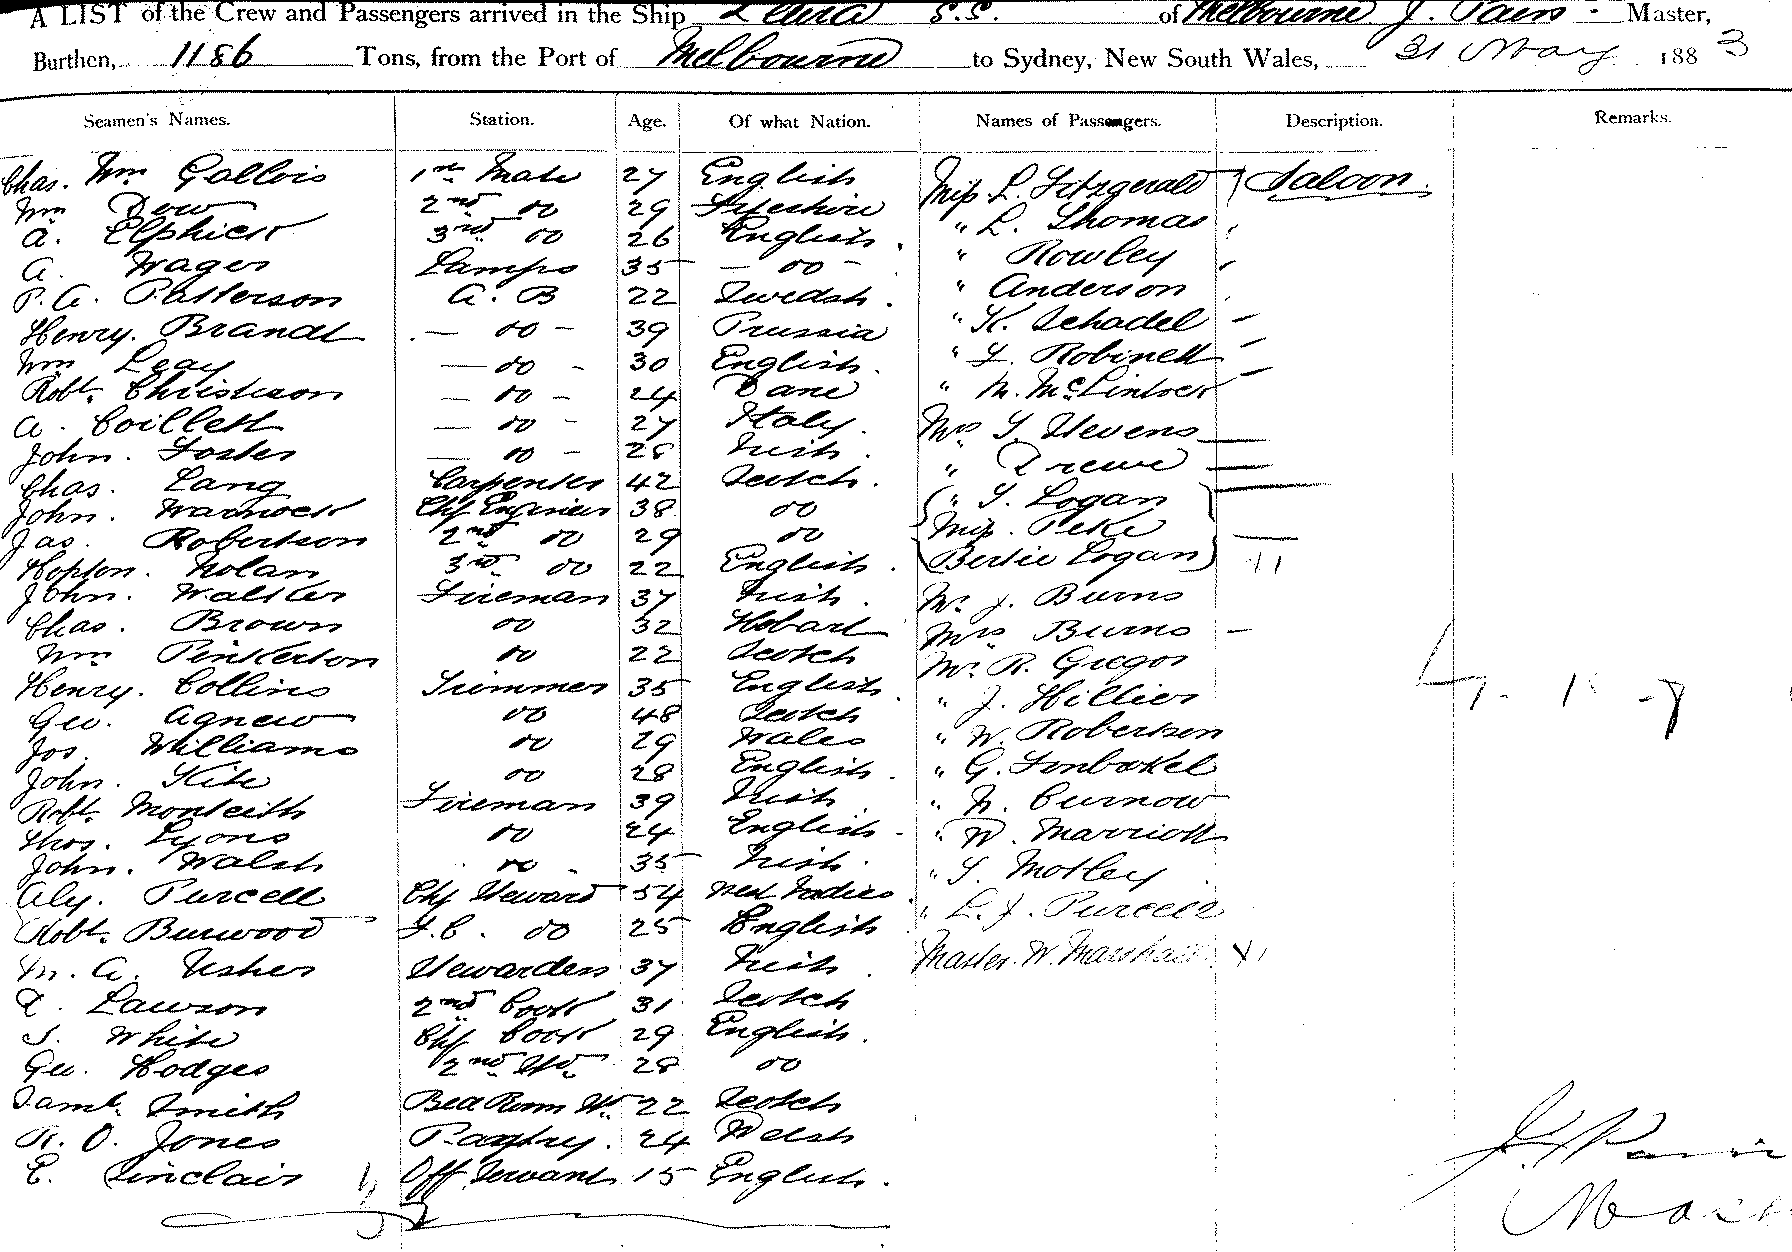 A LIST of the Crew and Passengers arrived in the Ship S.S. of Melbourne J. Master,
Burthen, 1186 Tons, from the Port of Melbourne to Sydney, New South Wales, 31 May 1883
Seamen's Names. Station. Age. Of what Nation. Names of Passengers. Description. Remarks.
Chas. Wm Gallois 1st Mate 27 English Miss L. Fitzgerald } Saloon
Wm Dow 2nd do 29 Fifeshire " L. Thomas
A. Elphick 3rd do 26 English. " Rowley
A. Wager Lamps 35 — do - " Anderson
P. A. Patterson A. B 22 Swedsh. " K. Schadel -
Henry. Brandt — do - 39 Prussia " L. Robinett -
Wm Leay — do - 30 English. " M. McLintock -
Robt. Christeson — do - 24 Dane Mrs S. Stevens —
A. Coillett — do - 27 Italy. " Drewe —
John. Foster — do - 28 Irish. ( " S. Logan }
Chas. Lang Carpenter 42 Scotch. Miss. Peke
John. Warnock Chf Engineer 38 do ( Bertie Logan )
Jas. Robertson 2nd do 29 do Mr J. Burns
Hopton. Nolan 3rd do 22 English. Mrs Burns -
John. Walsker Fireman 37 Irish. Mr R. Gregor
Chas. Brown do 32 Hobart " J. Hillier
Wm Pinkerton do 22 Scotch " W. Robertson
Henry. Collins Trimmer 35 English. " G.
Geo. Agnew do 48 Scotch " N. Curnow
Jos. Williams do 29 Wales " W. Marriott
John. Kite do 28 English. " S. Motley
Robt. Monteith Fireman 39 Irish " L. J. Purcell
Thos. Lyons do 24 English - Master. W. Marshall
John. Walsh do 35 Irish.
Aly. Purcell Chf Steward 54 West Indies.
Robt. Burwood F.C. do 25 English
M. A. Usher Stewardess 37 Irish.
A. Lawson 2nd Cook 31 Scotch
S. White Chf Cook 29 English.
Geo. Hodges 2nd St. 28 do
Saml. Smith Bed Room St. 22 Scotch
R. O. Jones Pantry. 24 Welsh
E. Sinclair Off Servant 15 English.